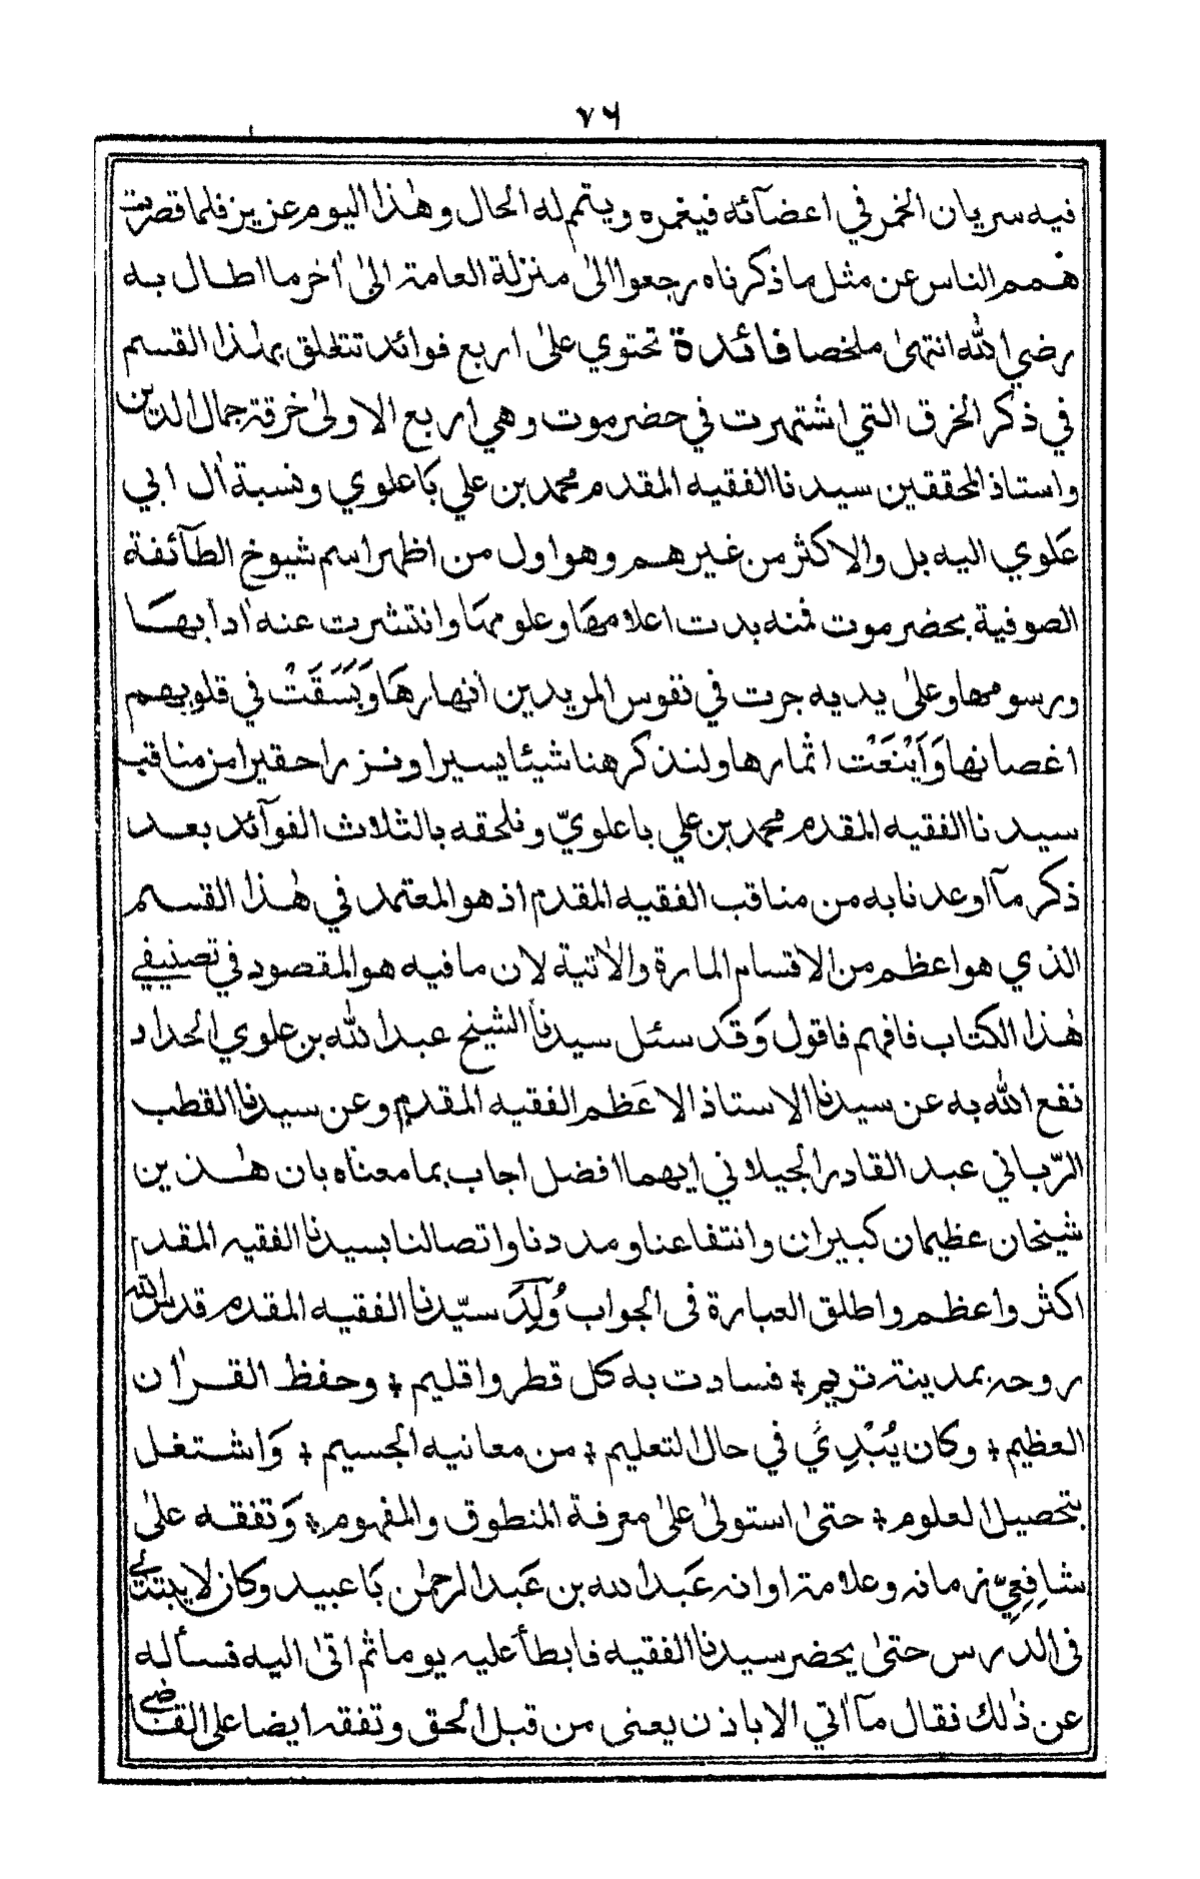 ٧٦
فيه سريان الخمر في اعضآئه فيغمره ويتمم له الحال وهٰذا اليوم عزيز فلما قصرت
همم الناس عن مثل ما ذكرناه رجعوا الىٰ منزلة العامة الىٰ اٰخر ما اطال به
رضي الله انتهىٰ ملخصا فائدة تحتوي علىٰ اربع فوائد تتعلق بهٰذا القسم
في ذكر الخرق التي اشتهرت في حضرموت وهي اربع الاولىٰ خرقة جمال الدين
واستاذ المحققين سيدنا الفقيه المقدم محمد بن علي بَاعلوي ونسبة اٰل ابي
عَلوي اليه بل والاكثر من غيرهم وهو اول من اظهر اسم شيوخ الطآئفة
الصوفية بحضرموت فمنه بدت اعلامهَا وعلومهَا وانتشرت عنه اٰدابهَا
ورسومها وعلىٰ يديه جرت في نفوس المريدين انهارهَا وَبَسَقَتْ في قلوبهم
اغصانها وَاَيْنَعَتْ اثمارها ولنذكر هنا شيئا يسيرا ونزرا حقيرا من مناقب
سيدنا الفقيه المقدم محمد بن علي باعلويّ ونلحقه بالثلاث الفوآئد بعد
ذكر مآ اوعدنا به من مناقب الفقيه المقدم اذ هو المعتمد في هٰذا القسم
الذي هو اعظم من الاقسام المارة والاٰتية لان ما فيه هو المقصود في تصنيفي
هٰذا الكتاب فافهم فاقول وَقَد سئل سيدنا الشيخ عبد الله بن علوي الحداد
نفع الله به عن سيدنا الاستاذ الاعَظم الفقيه المقدم وعن سيدنا القطب
الرّباني عبد القادر الجيلاني ايهما افضل اجاب بما معناه بان هٰذين
شيخان عظيمان كبيران وانتفاعنا ومددنا واتصالنا بسيدنا الفقيه المقدم
اكثر واعظم واطلق العبارة فى الجواب وُلِدَ سيّدنا الفقيه المقدم قدس الله
روحه بمدينة تريم ؞ فسادت به كل قطر واقليم ؞ وحفظ القراٰن
العظيم ؞ وكان يُبْدِئُ في حال التعليم ؞ من معانيه الجسيم ؞ وَاشتغل
بتحصيل العلوم ؞ حتىٰ استولىٰ علىٰ معرفة المنطوق والمفهوم ؞ وَتفقه علىٰ
شافِعِيّ زمانه وعلامة اوانه عَبد الله بن عَبد الرحمٰن بَاعبيد وكان لا يبتدئ
فى الدرس حتىٰ يحضر سيدنا الفقيه فابطأ عَليه يوما ثم اتىٰ اليه فسأله
عن ذٰلك فقال مآ اٰتي الا باذن يعنى من قبل الحق وتفقه ايضا على القاضي